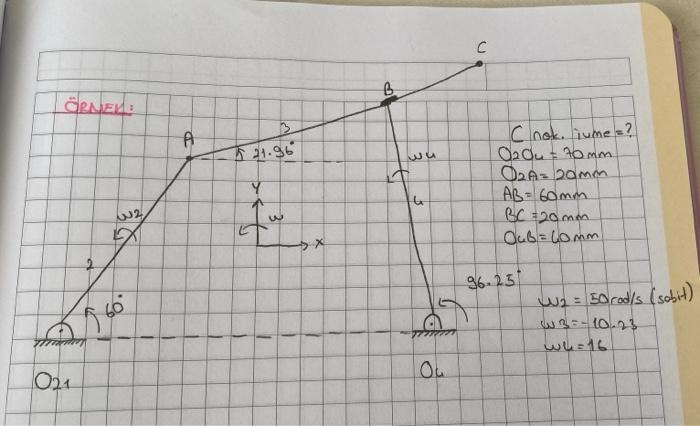 ÖRNEK:
C
B
A
3
21.96°
ω2
2
60°
Y
ω
x
ω4
4
96.25°
O21
O4
C nok. ivme=?
O2O4 = 70mm
O2A = 20mm
AB = 60mm
BC = 20mm
O4B = 40mm
ω2 = 50rad/s (sabit)
ω3 = -10.23
ω4 = 16